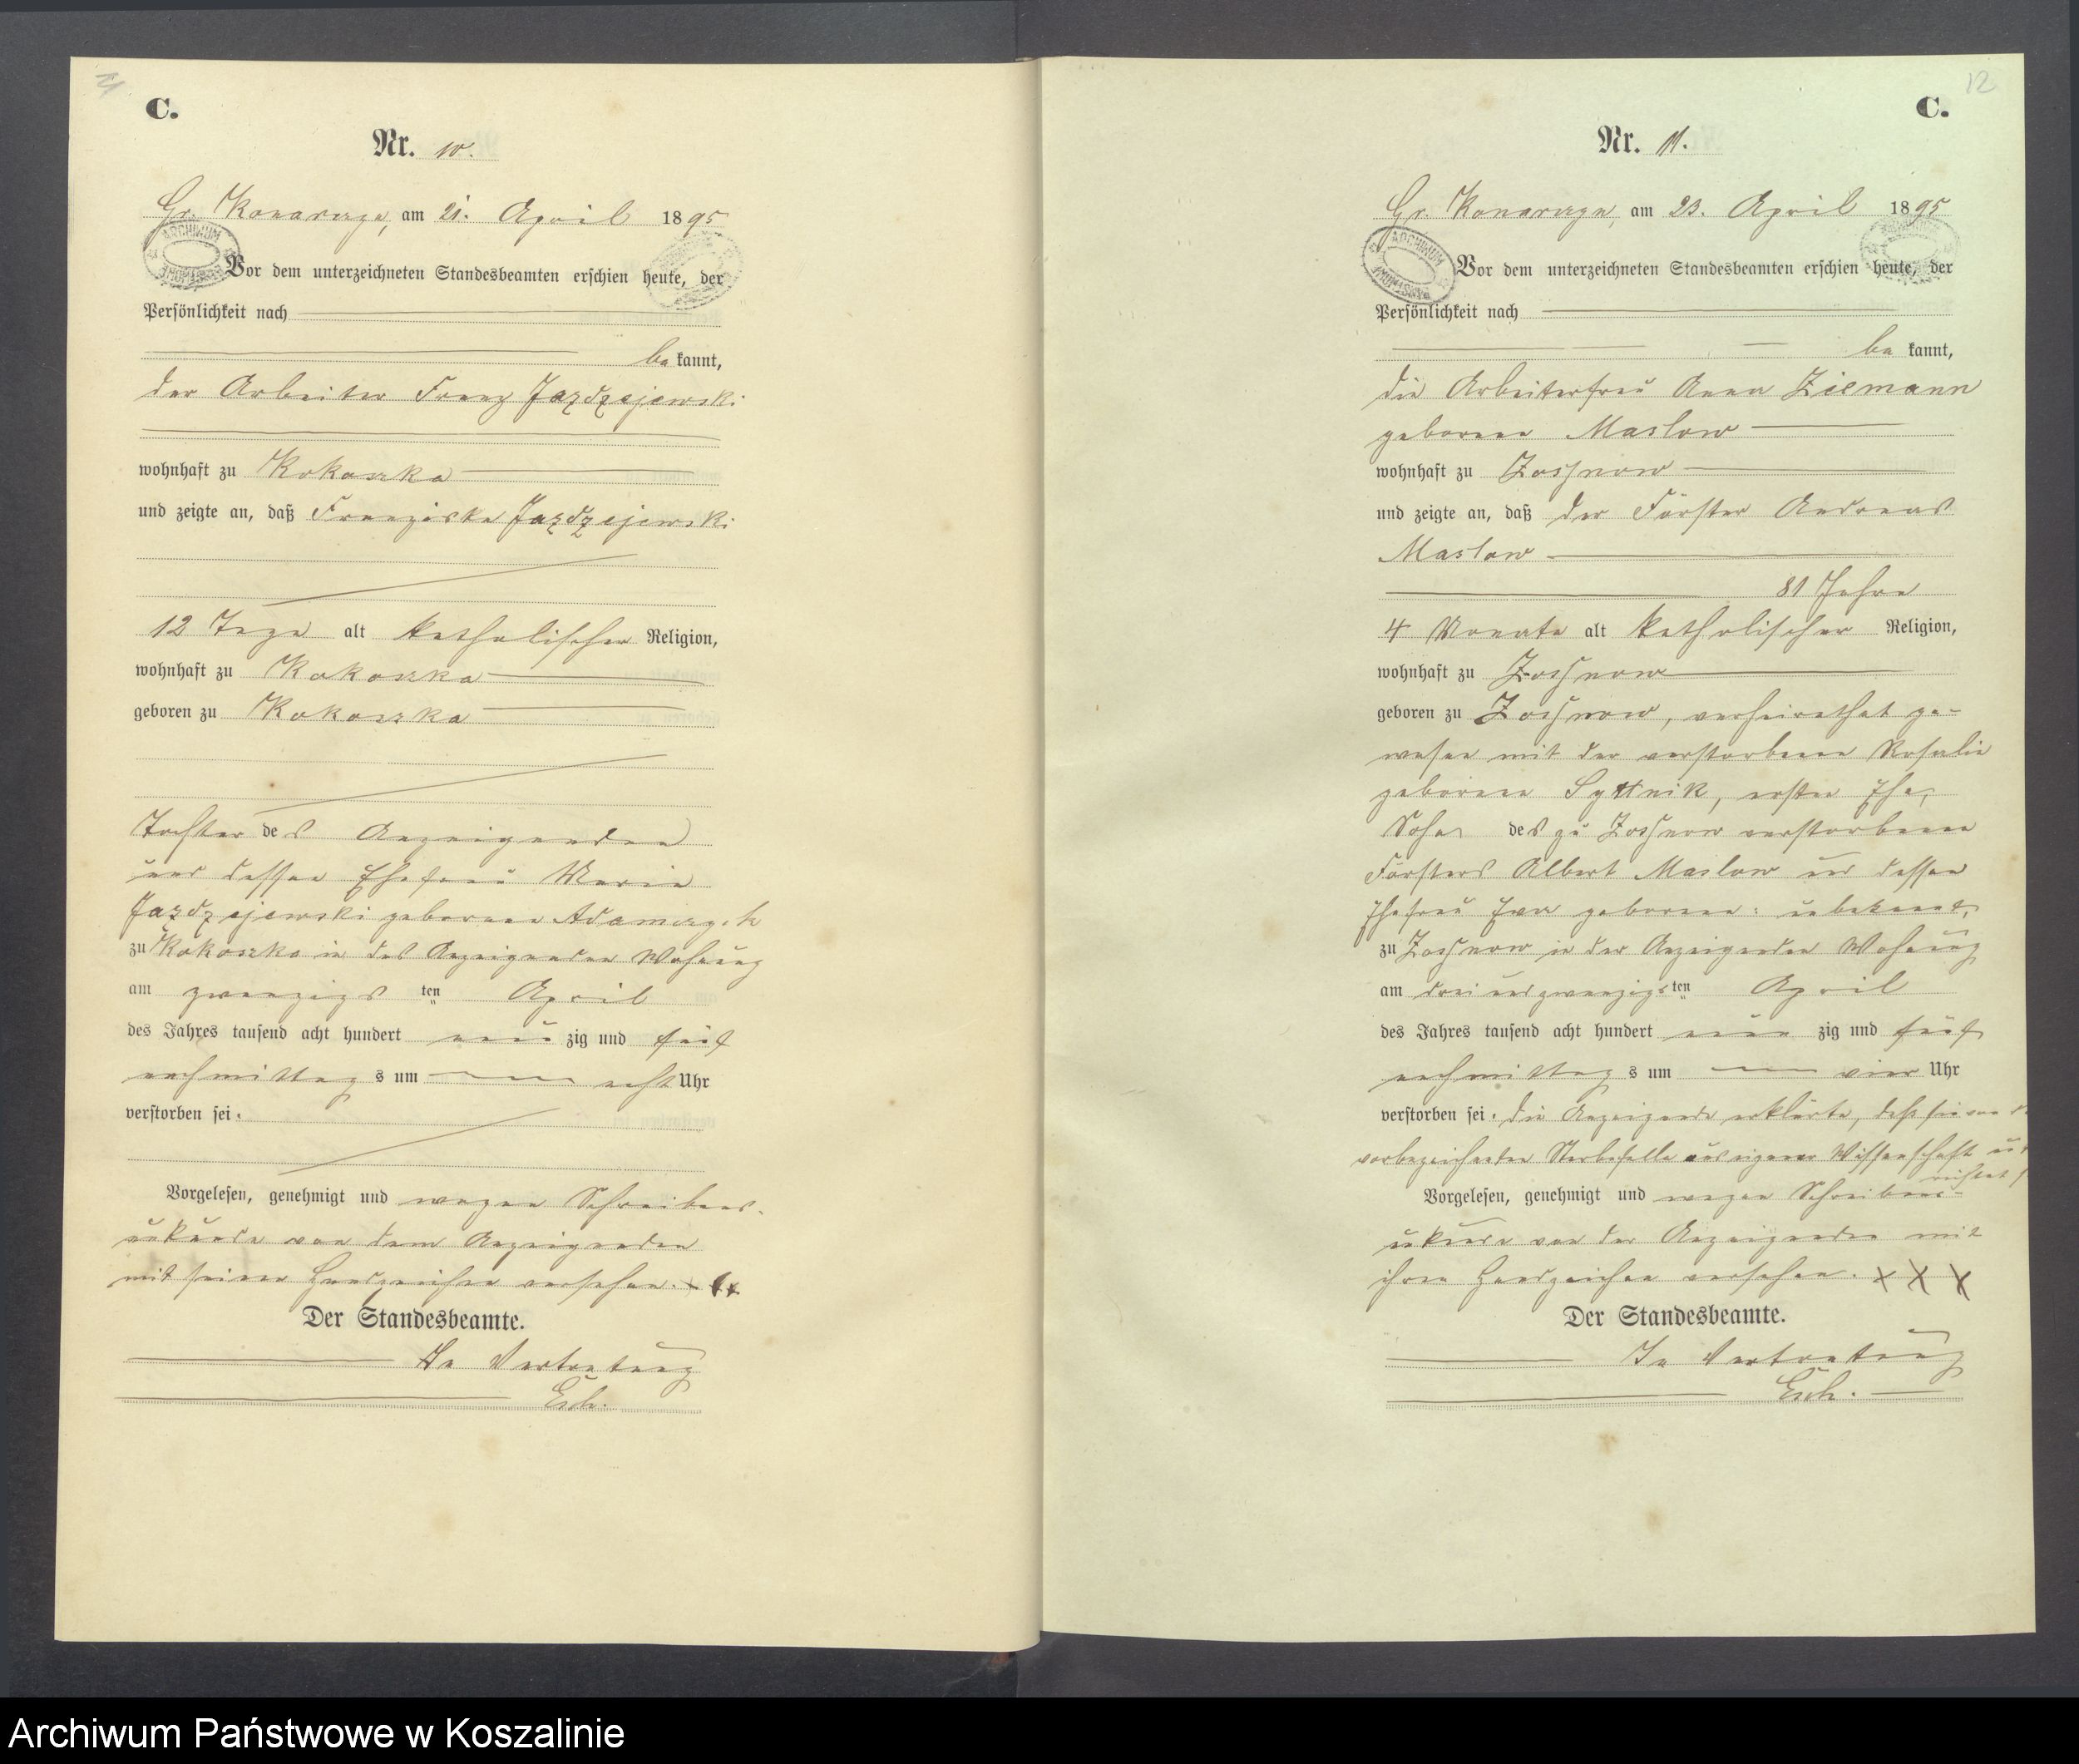 C.
Nr. 10.
Gr. Konarczyn, am 21. April 1895
ARCHIWUM
Vor dem unterzeichneten Standesbeamten erschien heute, der
Persönlichkeit nach
be kannt,
der Arbeiter Franz Jazdzejewski
wohnhaft zu Kokoszka
und zeigte an, daß Franziska Jazdzejewski
12 Tage alt katholischer Religion,
wohnhaft zu Kokoszka
geboren zu Kokoszka
Tochter des Anzeigenden
und dessen Ehefrau Maria
Jazdzejewski geborene
zu Kokoszka in des Anzeigenden Wohnung
am zwanzigsten April
des Jahres tausend acht hundert neunzig und fünf
nachmittags um acht Uhr
verstorben sei.
Vorgelesen, genehmigt und wegen Schreibens-
unkunde von dem Anzeigenden
mit seinen Handzeichen versehen.
Der Standesbeamte.
In Vertretung
12
C.
Nr. 11.
Gr. Konarczyn, am 23. April 1895
ARCHIWUM
Vor dem unterzeichneten Standesbeamten erschien heute, der
Persönlichkeit nach
be kannt,
die Arbeiterfrau Anna Ziemann
geborene Maslow
wohnhaft zu Zossnow
und zeigte an, daß der Förster Andreas
Maslow
81 Jahre
4 Monate alt katholischer Religion,
wohnhaft zu Zossnow
geboren zu Zossnow, verheirathet ge-
wesen mit der verstorbenen Rosalie
geborene Syttnik, erster Ehe,
Sohn des zu Zossnow verstorbenen
Försters Albert Maslow und dessen
Ehefrau Eva geborene: unbekannt,
zu Zossnow in der Anzeigenden Wohnung
am dreiundzwanzigsten April
des Jahres tausend acht hundert neunzig und fünf
nachmittags um vier Uhr
verstorben sei. Die Anzeigende erklärte, daß sie von
vorbezeichneten Sterbefalle aus eigener Wissenschaft unter
richtet sei
Vorgelesen, genehmigt und wegen Schreibens-
unkunde von der Anzeigenden mit
ihren Handzeichen versehen. X X X
Der Standesbeamte.
In Vertretung
Archiwum Państwowe w Koszalinie